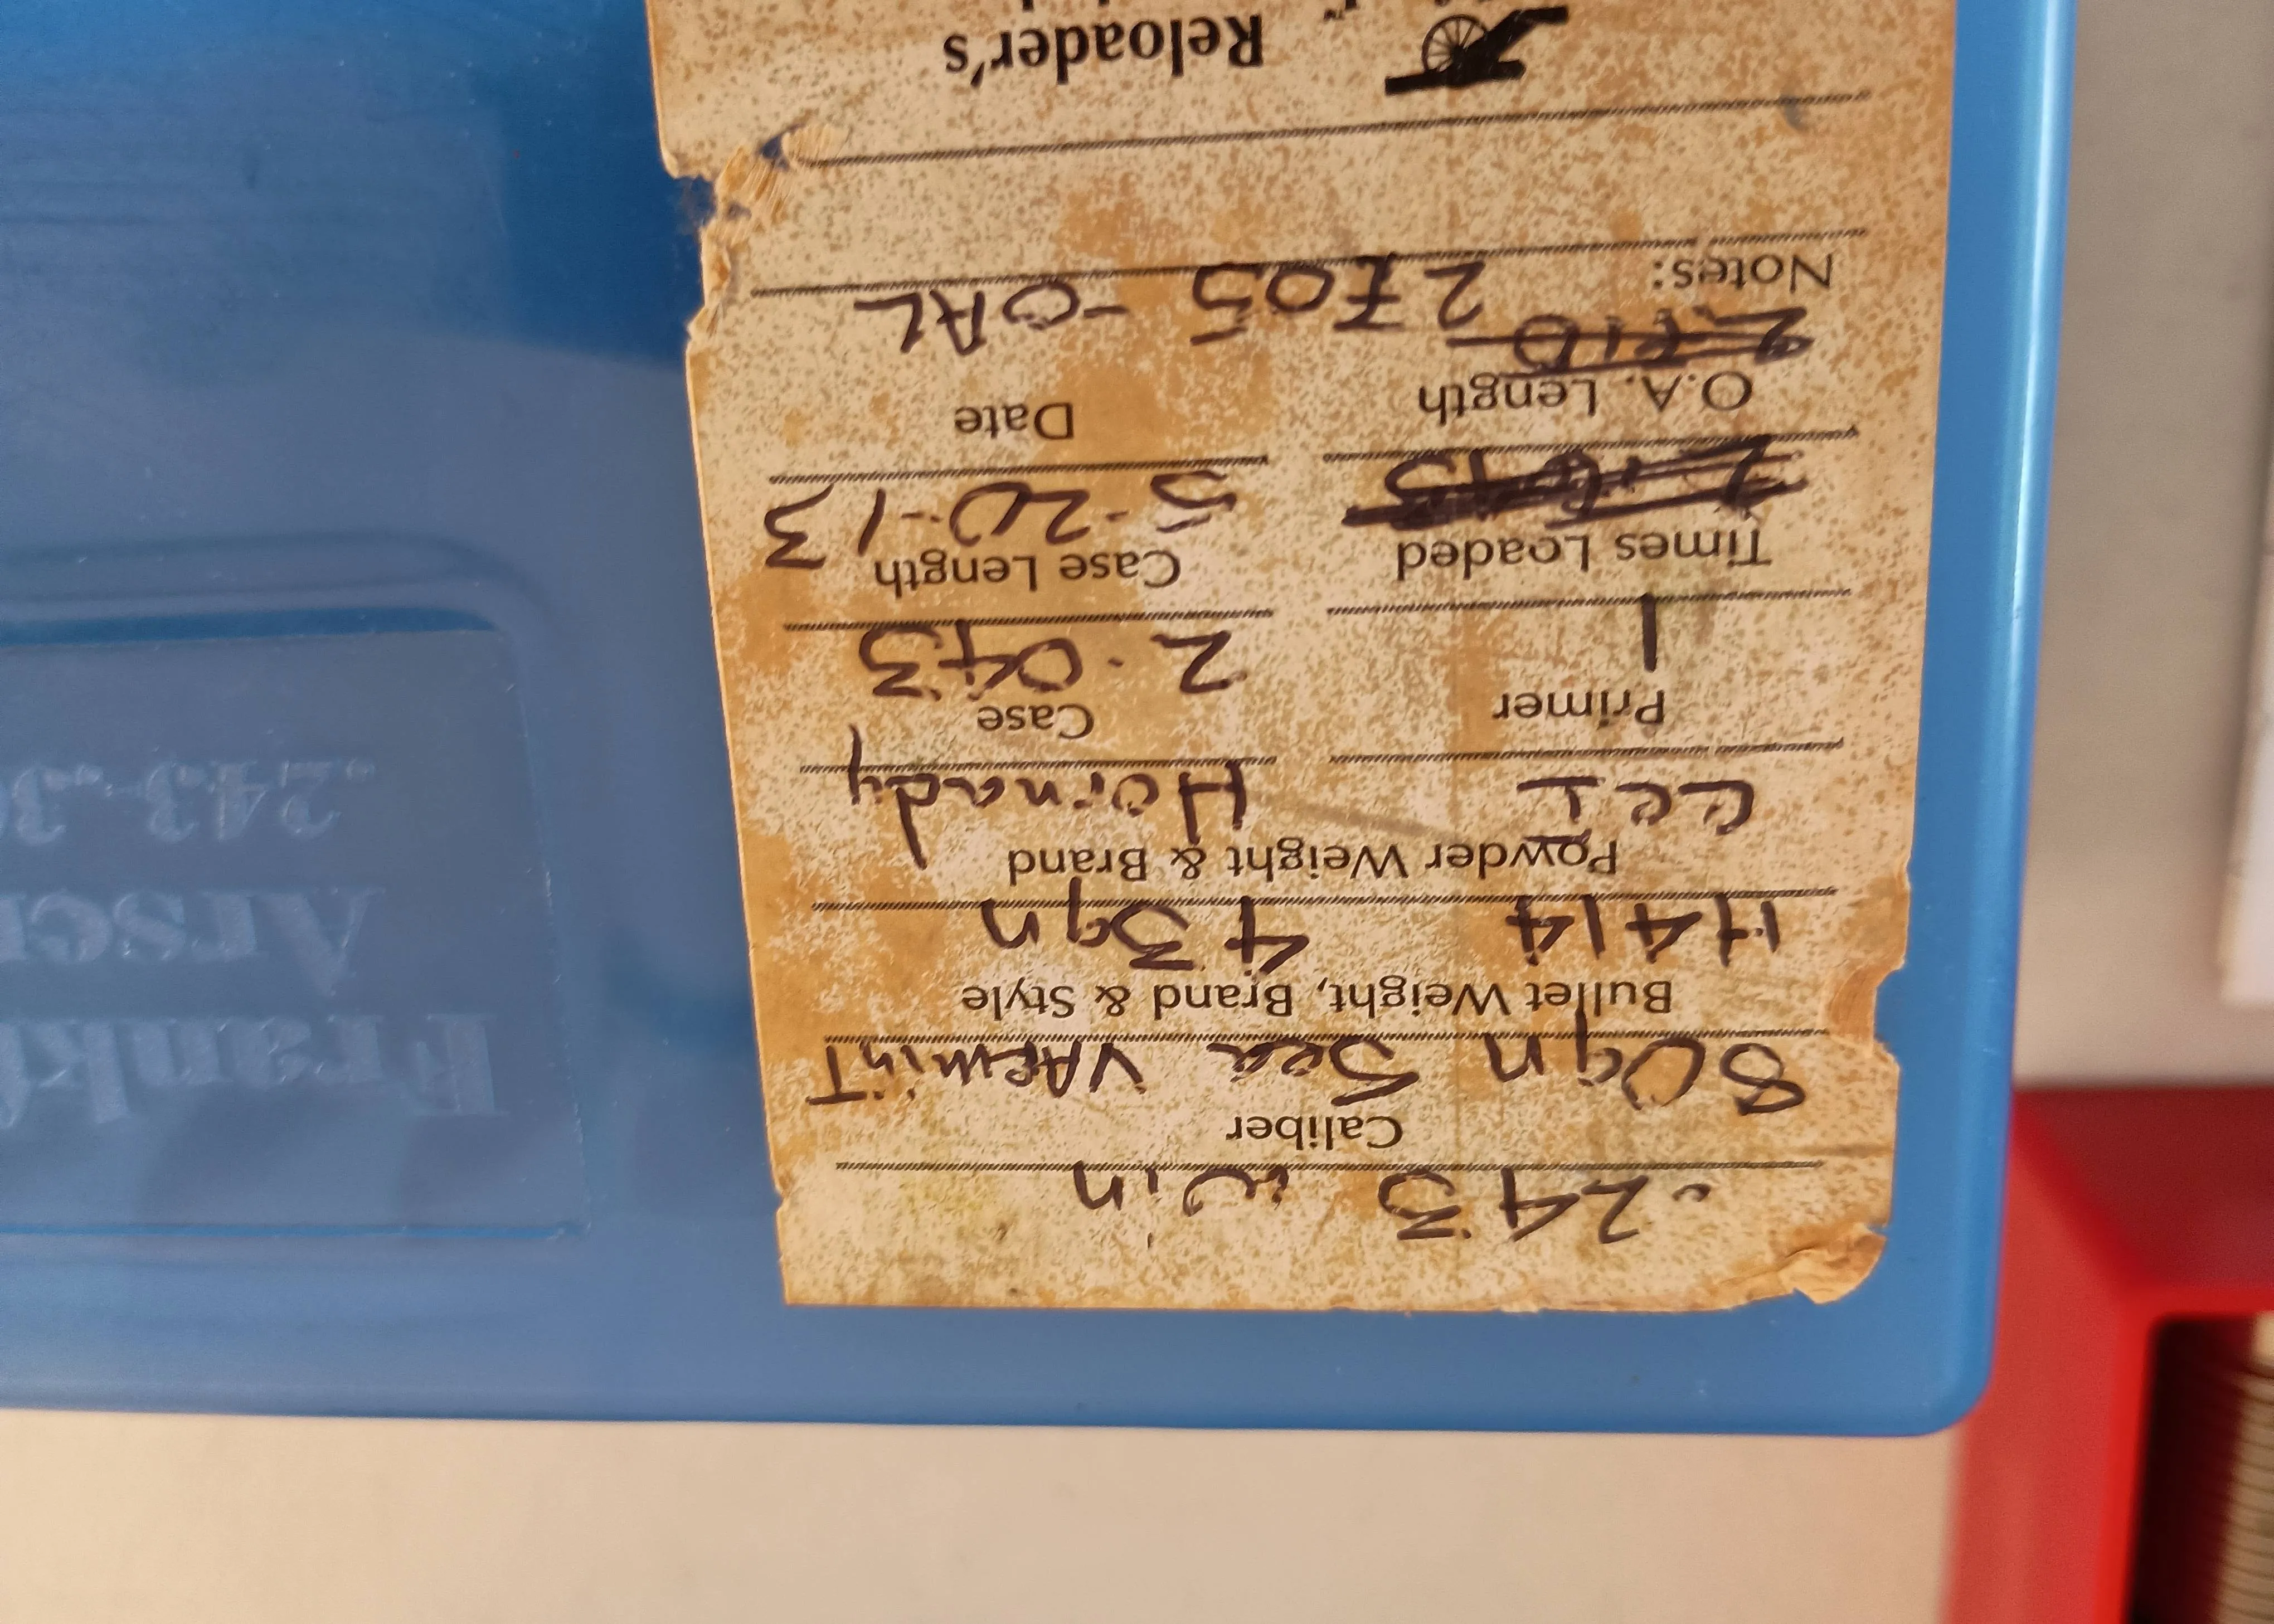 .243 win
Caliber
80gn Sea VARminT
Bullet Weight, Brand & Style
H414 43gn
Powder Weight & Brand
CCI Hornady
Primer Case
1 2.043
Times Loaded Case Length
5-20-13
O.A. Length Date
2705 -OAL
Notes:
Reloader's
Frankf
Arsen
.243-.30